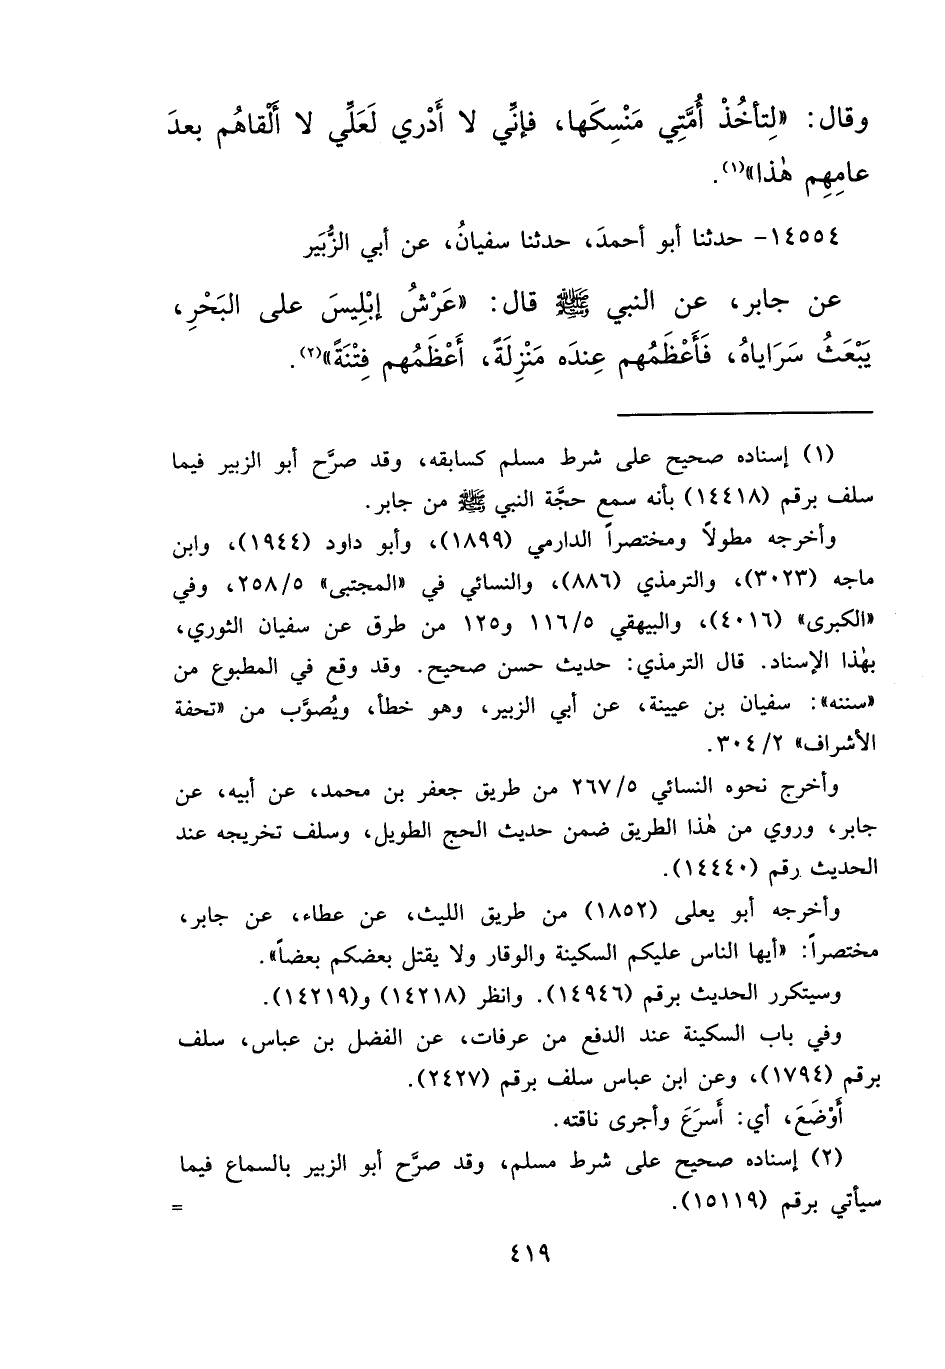 وقال: «لِتأخُذْ أُمَّتِي مَنْسِكَها، فإنِّي لا أَدْري لَعَلِّي لا أَلْقاهُم بعدَ
عامِهِم هٰذا»(١).
١٤٥٥٤- حدثنا أبو أحمدَ، حدثنا سفيانُ، عن أبي الزُّبَير
عن جابر، عن النبي ﷺ قال: «عَرْشُ إبْلِيسَ على البَحْرِ،
يَبْعَثُ سَرَاياهُ، فَأَعْظَمُهم عِندَه مَنْزِلَةً، أَعْظَمُهم فِتْنَةً»(٢).
(١) إسناده صحيح على شرط مسلم كسابقه، وقد صرَّح أبو الزبير فيما
سلف برقم (١٤٤١٨) بأنه سمع حجَّة النبي ﷺ من جابر.
وأخرجه مطولاً ومختصراً الدارمي (١٨٩٩)، وأبو داود (١٩٤٤)، وابن
ماجه (٣٠٢٣)، والترمذي (٨٨٦)، والنسائي في «المجتبى» ٢٥٨/٥، وفي
«الكبرى» (٤٠١٦)، والبيهقي ١١٦/٥ و١٢٥ من طرق عن سفيان الثوري،
بهٰذا الإسناد. قال الترمذي: حديث حسن صحيح. وقد وقع في المطبوع من
«سننه»: سفيان بن عيينة، عن أبي الزبير، وهو خطأ، ويُصوَّب من «تحفة
الأشراف» ٣٠٤/٢.
وأخرج نحوه النسائي ٢٦٧/٥ من طريق جعفر بن محمد، عن أبيه، عن
جابر، وروي من هٰذا الطريق ضمن حديث الحج الطويل، وسلف تخريجه عند
الحديث رقم (١٤٤٤٠).
وأخرجه أبو يعلى (١٨٥٢) من طريق الليث، عن عطاء، عن جابر،
مختصراً: «أيها الناس عليكم السكينة والوقار ولا يقتل بعضكم بعضاً».
وسيتكرر الحديث برقم (١٤٩٤٦). وانظر (١٤٢١٨) و(١٤٢١٩).
وفي باب السكينة عند الدفع من عرفات، عن الفضل بن عباس، سلف
برقم (١٧٩٤)، وعن ابن عباس سلف برقم (٢٤٢٧).
أَوْضَعَ، أي: أَسرَعَ وأجرى ناقته.
(٢) إسناده صحيح على شرط مسلم، وقد صرَّح أبو الزبير بالسماع فيما
سيأتي برقم (١٥١١٩). =
٤١٩